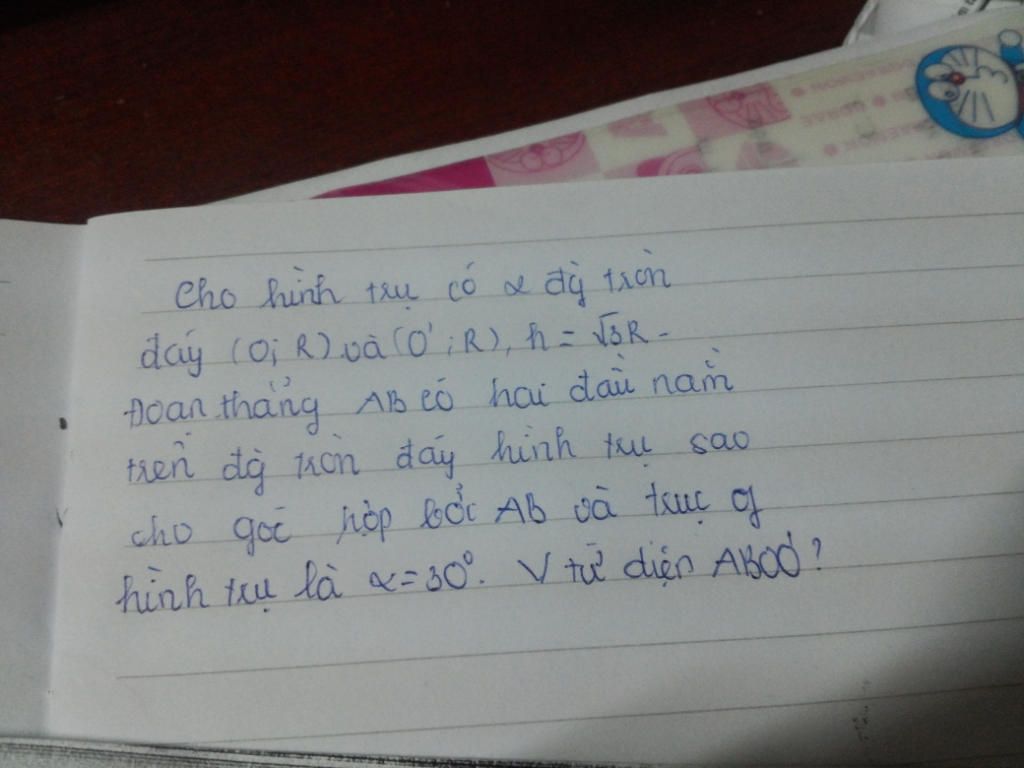 Cho hình trụ có 2 đg tròn
đáy (O; R) và (O'; R), h = √3R.
Đoạn thẳng AB có hai đầu nằm
trên đg tròn đáy hình trụ sao
cho góc hợp bởi AB và trục of
hình trụ là α = 30°. V tứ diện ABOO'?